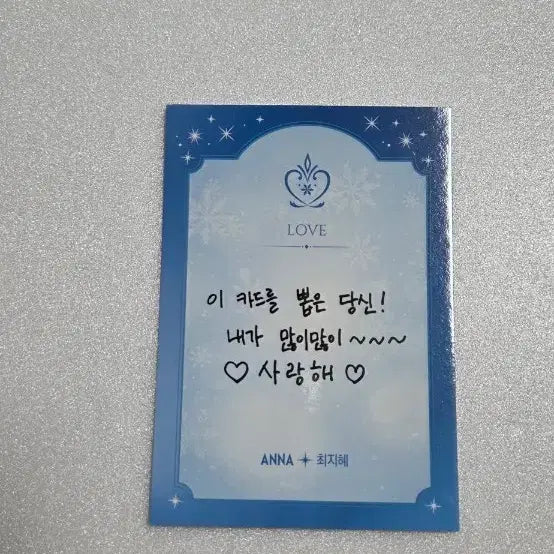 LOVE
이 카드를 뽑은 당신!
내가 많이많이~~~
♡ 사랑해 ♡
ANNA ✦ 최지혜